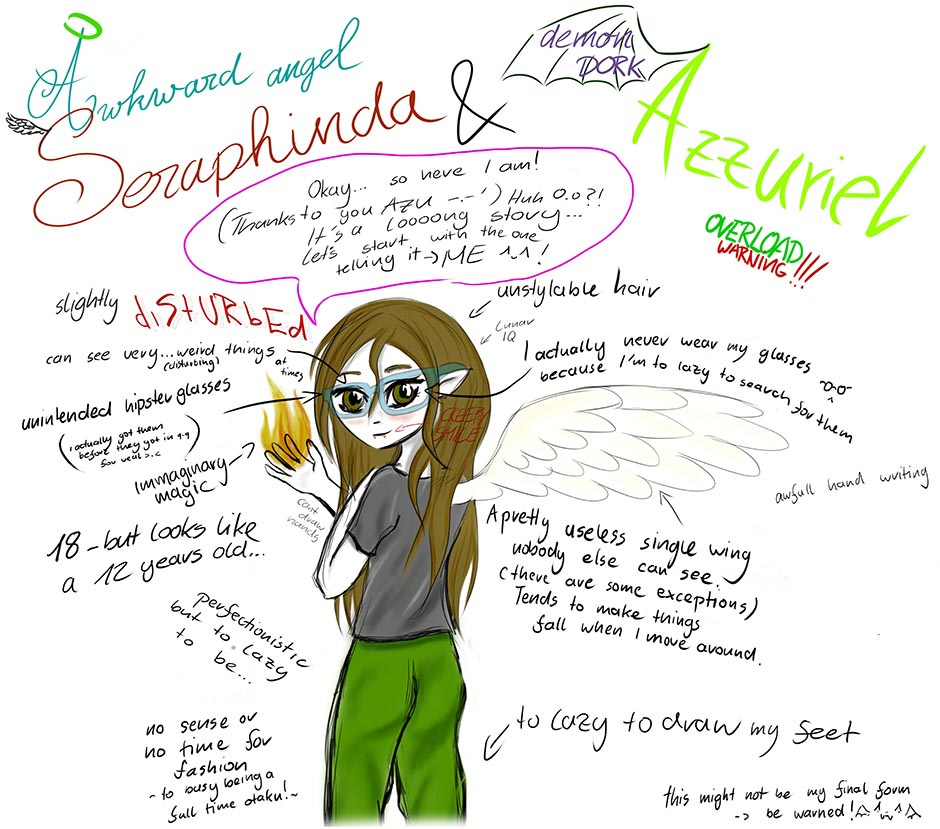 Awkward angel
Seraphinda &
demon
DORK
Azzuriel
OVERLOAD
WARNING!!!
Okay... so here I am!
(Thanks to you AZU -.-') Huh O.o?!
It's a Loooong story...
Let's start with the one
telling it → ME ^.^ !
slightly diSTURbEd
can see very...weird things at times
(disturbing)
unintended hipster glasses
(I actually got them
before they got in q.q
for real >.<)
immaginary
magic
cant draw
hands
18 - but looks like
a 12 years old...
perfectionistic
but to lazy
to be...
no sense or
no time for
fashion
~ to busy being a
full time otaku!~
unstylable hair
Lunar
IQ
I actually never wear my glasses
because I'm to lazy to search for them
CREEPY
SMILE
awfull hand writing
A pretty useless single wing
nobody else can see.
(there are some exceptions)
Tends to make things
fall when I move around.
to lazy to draw my feet
this might not be my final form
-> be warned!